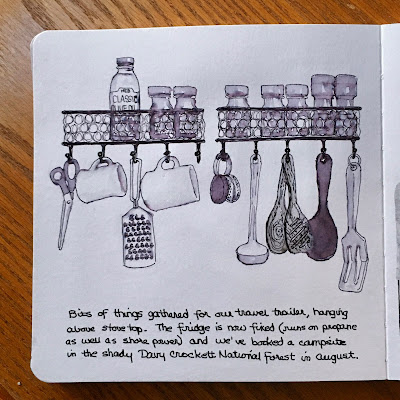 CLASSIC
OLIVE OIL
Bits of things gathered for our travel trailer, hanging
above stove top. The fridge is now fixed (runs on propane
as well as shore power) and we've booked a campsite
in the shady Davy Crockett National Forest in August.